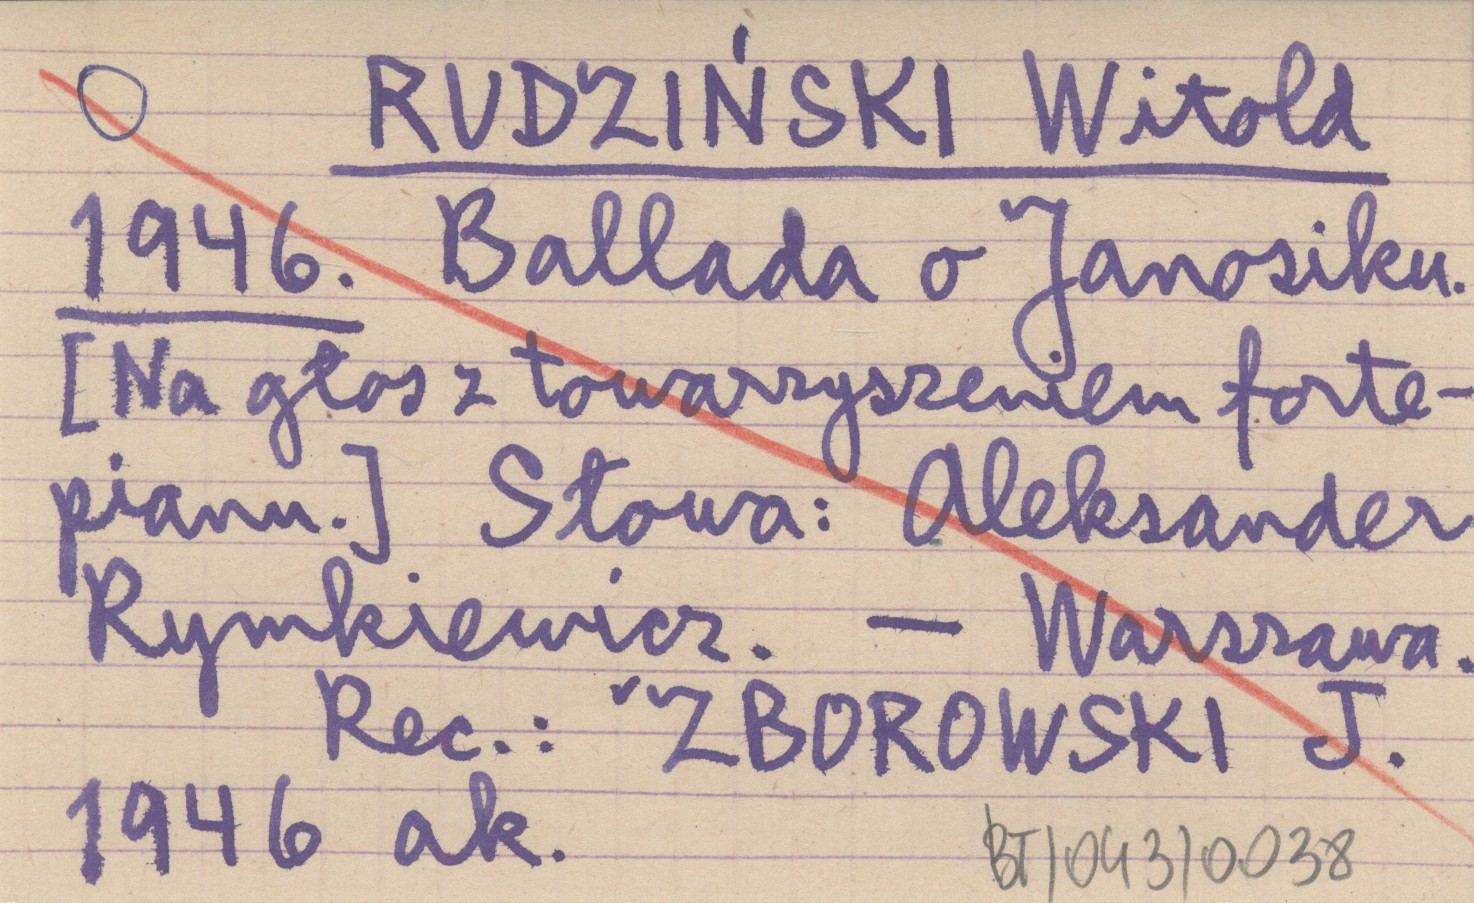 RUDZIŃSKI Witold
1946. Ballada o Janosiku.
[Na głos z towarzyszeniem forte-
pianu.] Słowa: Aleksander
Rymkiewicz. — Warszawa.
Rec.: ZBOROWSKI J.
1946 ak.
BT/043/0038